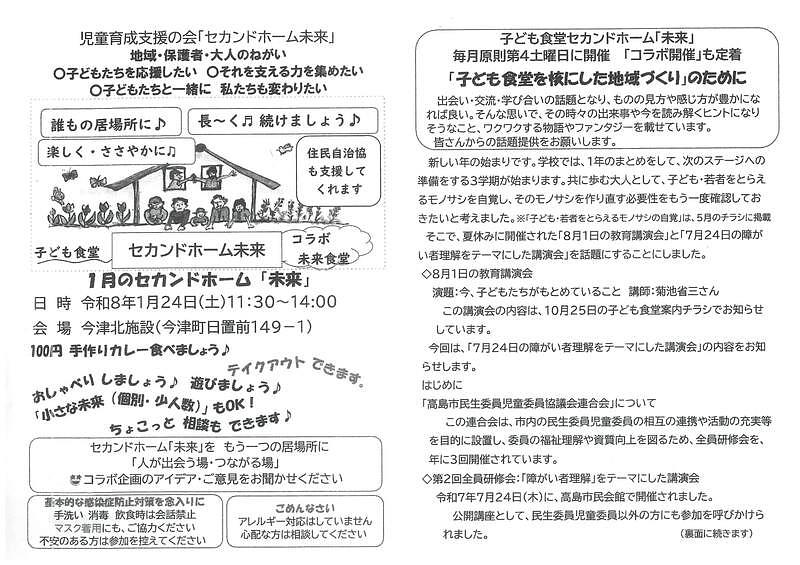 児童育成支援の会「セカンドホーム未来」
地域・保護者・大人のねがい
〇子どもたちを応援したい 〇それを支える力を集めたい
〇子どもたちと一緒に 私たちも変わりたい
誰もの居場所に♪
長～く♬続けましょう♪
楽しく・ささやかに♫
住民自治協
も支援して
くれます
子ども食堂
セカンドホーム未来
コラボ
未来食堂
1月のセカンドホーム「未来」
日 時 令和8年1月24日(土)11:30～14:00
会 場 今津北施設(今津町日置前149－1)
100円 手作りカレー食べましょう♪
テイクアウト できます。
おしゃべり しましょう♪ 遊びましょう♪
「小さな未来(個別・少人数)」もOK!
ちょこっと 相談も できます♪
セカンドホーム「未来」を もう一つの居場所に
「人が出会う場・つながる場」
コラボ企画のアイデア・ご意見をお聞かせください
基本的な感染症防止対策を念入りに
手洗い 消毒 飲食時は会話禁止
マスク着用にも、ご協力ください
不安のある方は参加を控えてください
ごめんなさい
アレルギー対応はしていません
心配な方は相談してください
子ども食堂セカンドホーム「未来」
毎月原則第4土曜日に開催 「コラボ開催」も定着
「子ども食堂を核にした地域づくり」のために
出会い・交流・学び合いの話題となり、ものの見方や感じ方が豊かにな
れば良い。そんな思いで、その時々の出来事や今を読み解くヒントになり
そうなこと、ワクワクする物語やファンタジーを載せています。
皆さんからの話題提供をお願いします。
新しい年の始まりです。学校では、1年のまとめをして、次のステージへの
準備をする3学期が始まります。共に歩む大人として、子ども・若者をとらえ
るモノサシを自覚し、そのモノサシを作り直す必要性をもう一度確認してお
きたいと考えました。※「子ども・若者をとらえるモノサシの自覚」は、5月のチラシに掲載
そこで、夏休みに開催された「8月1日の教育講演会」と「7月24日の障が
い者理解をテーマにした講演会」を話題にすることにしました。
◇8月1日の教育講演会
演題:今、子どもたちがもとめていること 講師:菊池省三さん
この講演会の内容は、10月25日の子ども食堂案内チラシでお知らせ
しています。
今回は、「7月24日の障がい者理解をテーマにした講演会」の内容をお知
らせします。
はじめに
「高島市民生委員児童委員協議会連合会」について
この連合会は、市内の民生委員児童委員の相互の連携や活動の充実等
を目的に設置し、委員の福祉理解や資質向上を図るため、全員研修会を、
年に3回開催されています。
◇第2回全員研修会:「障がい者理解」をテーマにした講演会
令和7年7月24日(木)に、高島市民会館で開催されました。
公開講座として、民生委員児童委員以外の方にも参加を呼びかけら
れました。 (裏面に続きます)